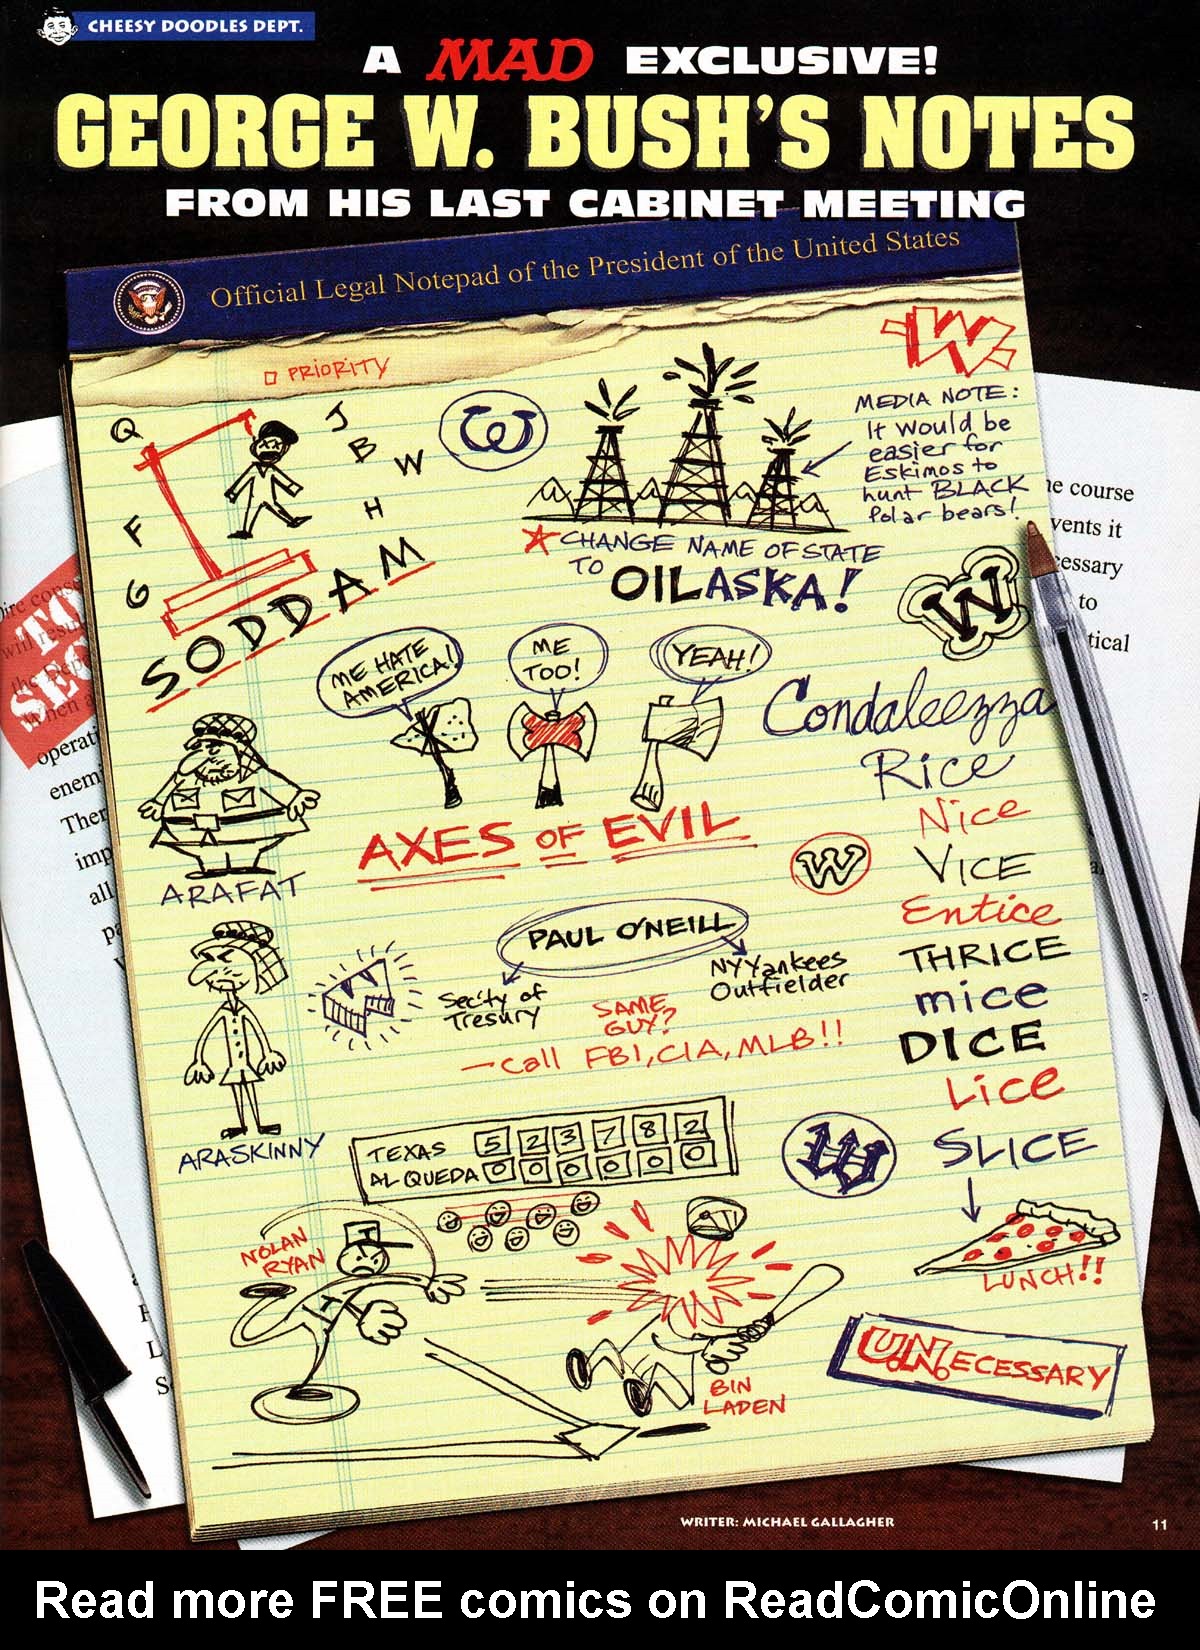 CHEESY DOODLES DEPT.
A MAD EXCLUSIVE!
GEORGE W. BUSH'S NOTES
FROM HIS LAST CABINET MEETING
Official Legal Notepad of the President of the United States
PRIORITY
Q
J
B
W
H
F
G
SODDAM
W
W.
MEDIA NOTE:
It would be
easier for
Eskimos to
hunt BLACK
Polar bears!
CHANGE NAME OF STATE
TO OILASKA!
W
ME HATE
AMERICA!
ME
TOO!
YEAH!
AXES OF EVIL
ARAFAT
ARASKINNY
Condaleezza
Rice
Nice
VICE
Entice
THRICE
mice
DICE
Lice
SLICE
LUNCH!!
W
W
PAUL O'NEILL
Sec'ty of
Tresury
NY Yankees
Outfielder
SAME
GUY?
- Call FBI, CIA, MLB!!
TEXAS 5 2 3 7 8 2
AL QUEDA 0 0 0 0 0 0
W
NOLAN
RYAN
T
BIN
LADEN
U.N.ECESSARY
TOP
SEC
operati
enem
Ther
imp
all
pa
e course
vents it
cessary
to
tical
WRITER: MICHAEL GALLAGHER
11
Read more FREE comics on ReadComicOnline